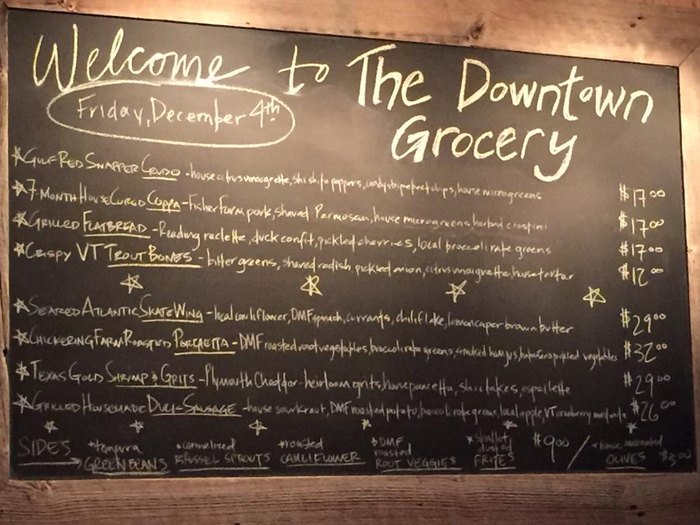 Welcome to The Downtown
Grocery
Friday, December 4th
Gulf Red Snapper Crudo - house citrus vinaigrette, shishito peppers, candystripe beet chips, house microgreens $17.00
7 Month House Cured Coppa - Fisher Farm pork, shaved Parmesan, house microgreens, herbed crostini $17.00
Grilled Flatbread - Reading raclette, duck confit, pickled cherries, local broccoli rabe greens $17.00
Crispy VT Trout Bones - bitter greens, shaved radish, pickled onion, citrus vinaigrette, house tartar $12.00
Seared Atlantic Skate Wing - local cauliflower, DMF spinach, currants, chili flake, lemon caper brown butter $29.00
Chickering Farm Roasted Porchetta - DMF roasted root vegetables, broccoli rabe greens, smoked ham jus, pickled vegetables $32.00
Texas Gold Shrimp & Grits - Plymouth Cheddar - heirloom grits, house pancetta, shiitakes, espellette $29.00
Grilled Housemade Duck Sausage - house sauerkraut, DMF roasted potato, broccoli rabe greens, local apple, VT cranberry $26.00
SIDES tempura caramelized roasted DMF shallot $9.00 / house marinated
GREEN BEANS BRUSSEL SPROUTS CAULIFLOWER roasted dusted OLIVES $3.00
ROOT VEGGIES FRITES